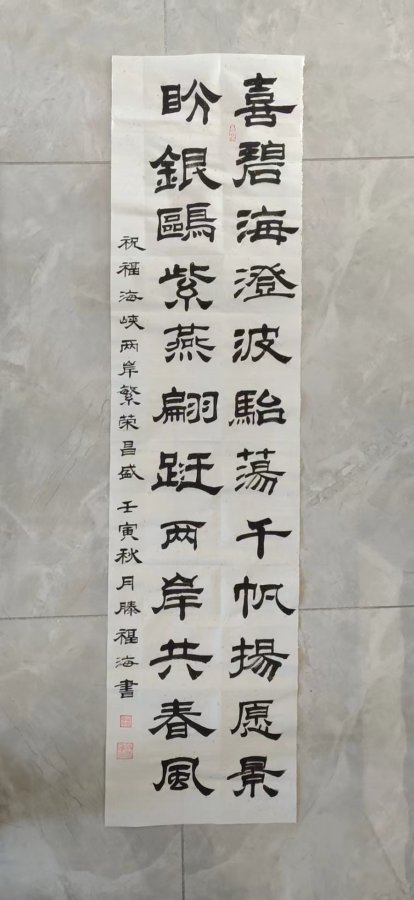 喜碧海澄波駘蕩千帆揚愿景
盼銀鷗紫燕翩跹两岸共春風
祝福海峡两岸繁荣昌盛 壬寅秋月滕福海書